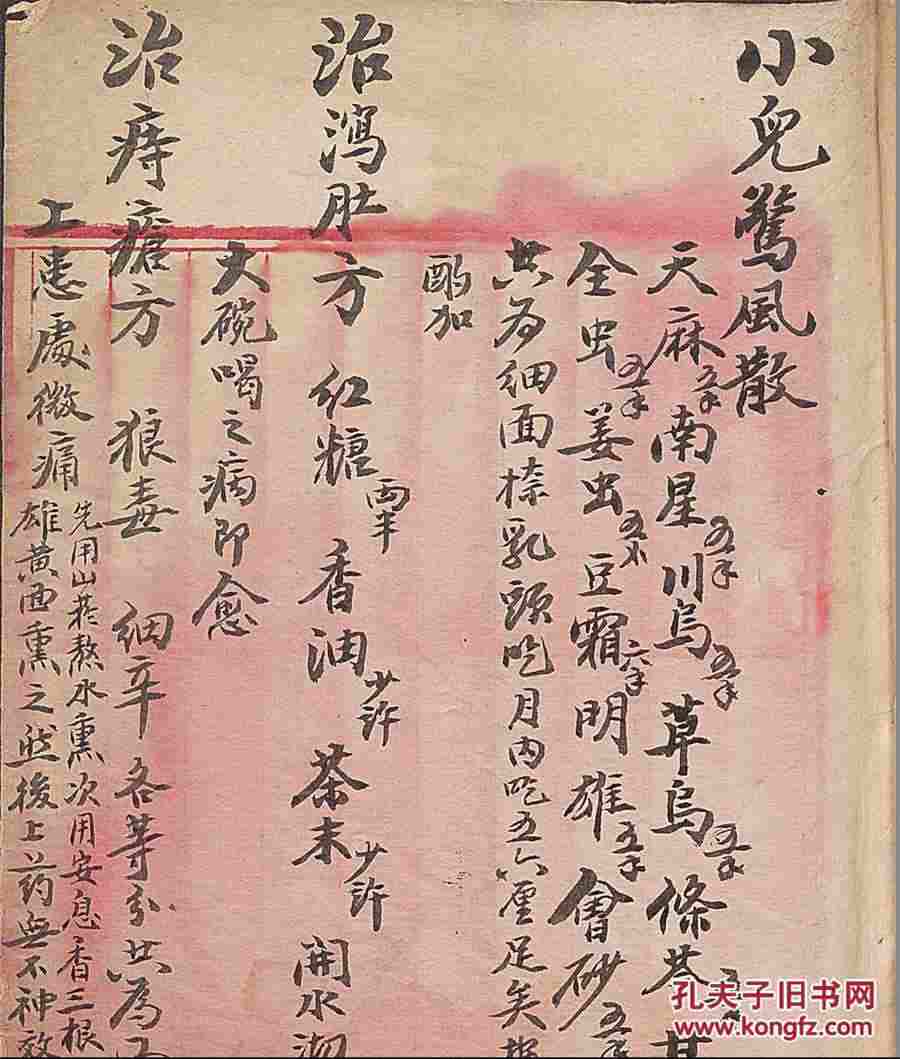 小兒驚風散
天麻五千南星五千川烏五千草烏五千條芩
全虫五千姜虫五个豆霜六千明雄五千會砂五千
共為细面搽乳頭吃月内吃五六厘足矣
酌加
治瀉肚方 红糖両半香油少許茶末少許開水
大碗喝之病即愈
治痔瘡方 狼毒 细辛各等分共為
上患處微痛
先用山菸熬水熏次用安息香三根
雄黄面熏之然後上药無不神效
孔夫子旧书网
www.kongfz.com